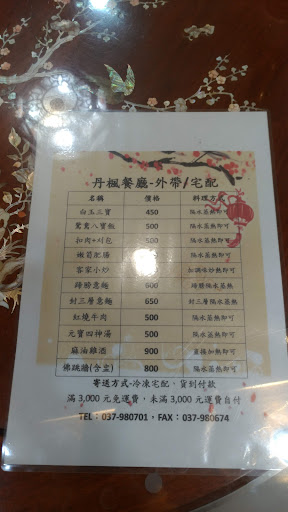 丹楓餐廳-外帶/宅配
名稱 價格 料理方式
白玉三寶 450 隔水蒸熱即可
鴛鴦八寶飯 500 隔水蒸熱即可
扣肉+刈包 500 隔水蒸熱即可
嫩筍肥腸 500 隔水蒸熱即可
客家小炒 500 如調味炒熱即可
蹄膀意麵 600 蹄膀隔水蒸熱
封三層意麵 650 封三層隔水蒸熱
紅燒牛肉 500 隔水蒸熱即可
元寶四神湯 500 隔水蒸熱即可
麻油雞酒 900 直接加熱即可
佛跳牆(含盅) 800 隔水蒸熱即可
寄送方式-冷凍宅配,貨到付款
滿 3,000 元免運費,未滿 3,000 元運費自付
TEL:037-980701,FAX:037-980674